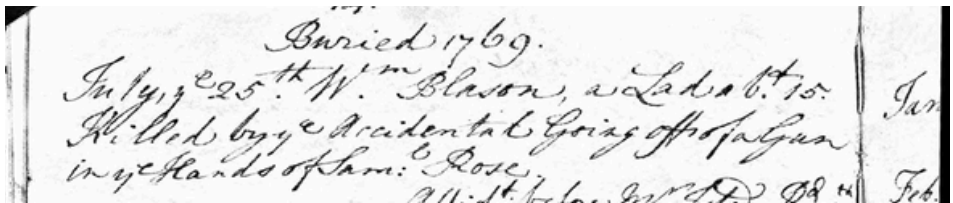 Buried 1769.
July, ye 25.th Wm. Blason, a Lad abt. 15.
Killed by ye Accidental Going off of a Gun
in ye Hands of Sam:l Rose.
before Mr
Jan
Feb.